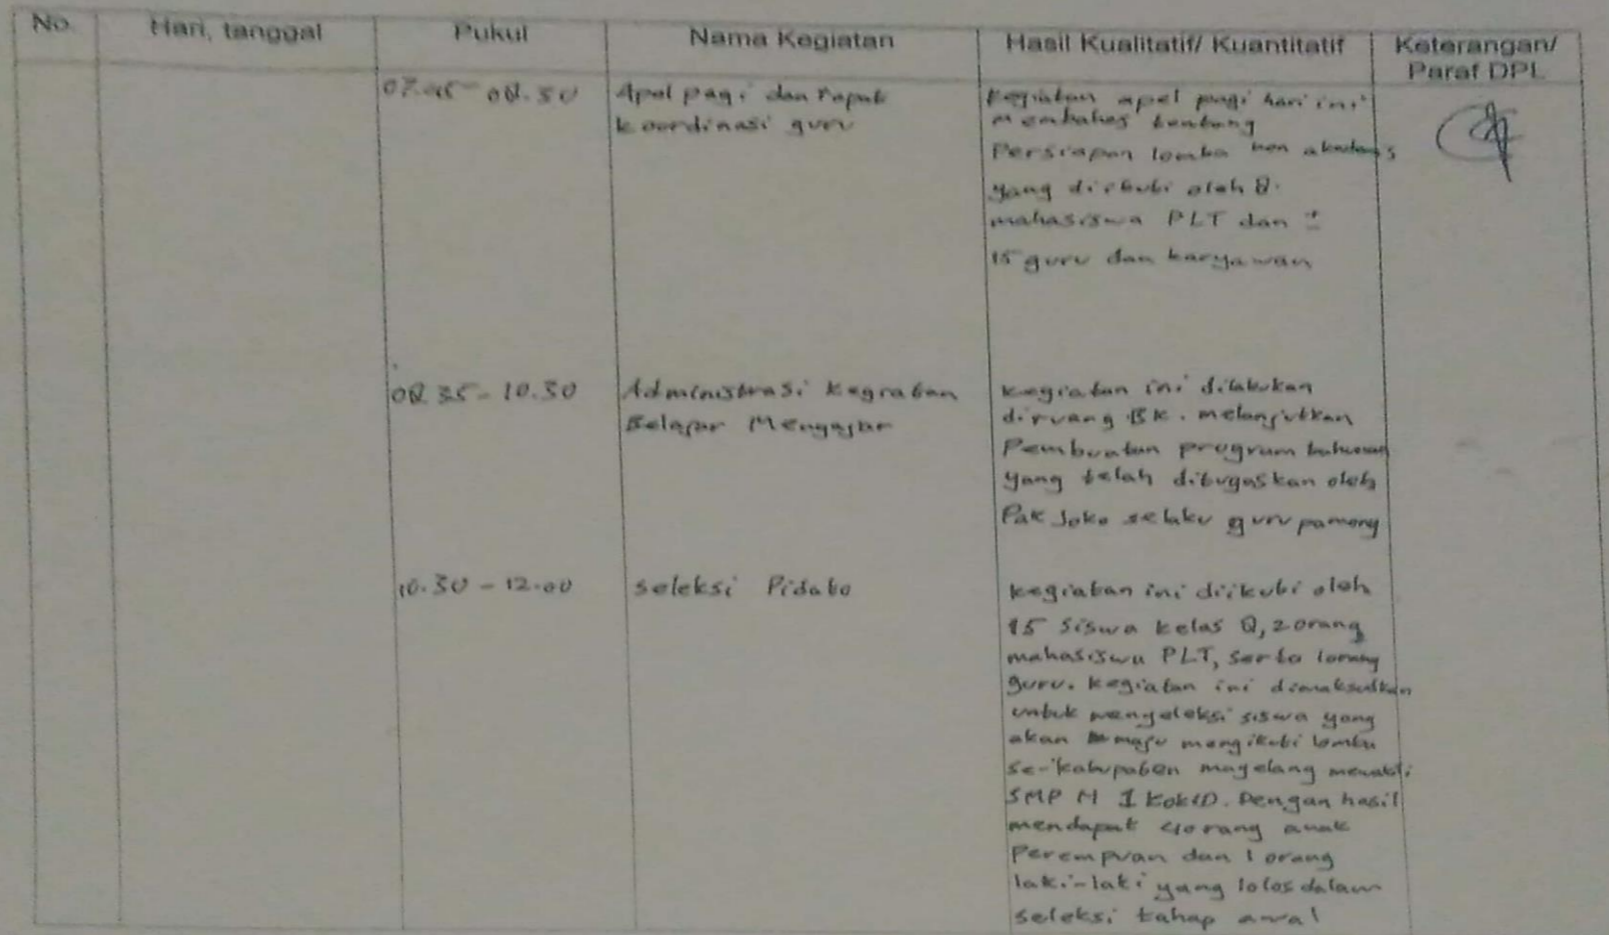 No. Hari, tanggal Pukul Nama Kegiatan Hasil Kualitatif/ Kuantitatif Keterangan/
Paraf DPL
07.45 - 08.30 Apel pagi dan rapat
koordinasi guru
kegiatan apel pagi hari ini
membahas tentang
Persiapan lomba non akademis
yang diikuti oleh 8
mahasiswa PLT dan ±
15 guru dan karyawan
08.35 - 10.30 Administrasi kegiatan
Belajar Mengajar
kegiatan ini dilakukan
diruang BK. melanjutkan
Pembuatan program tahunan
yang telah ditugaskan oleh
Pak Joko selaku guru pamong
10.30 - 12.00 seleksi Pidato
kegiatan ini diikuti oleh
15 siswa kelas 8, 2 orang
mahasiswa PLT, serta 1 orang
guru. kegiatan ini dimaksudkan
untuk menyeleksi siswa yang
akan maju mengikuti lomba
se-kabupaten magelang mewakili
SMP M 1. Dengan hasil
mendapat 4 orang anak
Perempuan dan 1 orang
laki-laki yang lolos dalam
seleksi tahap awal